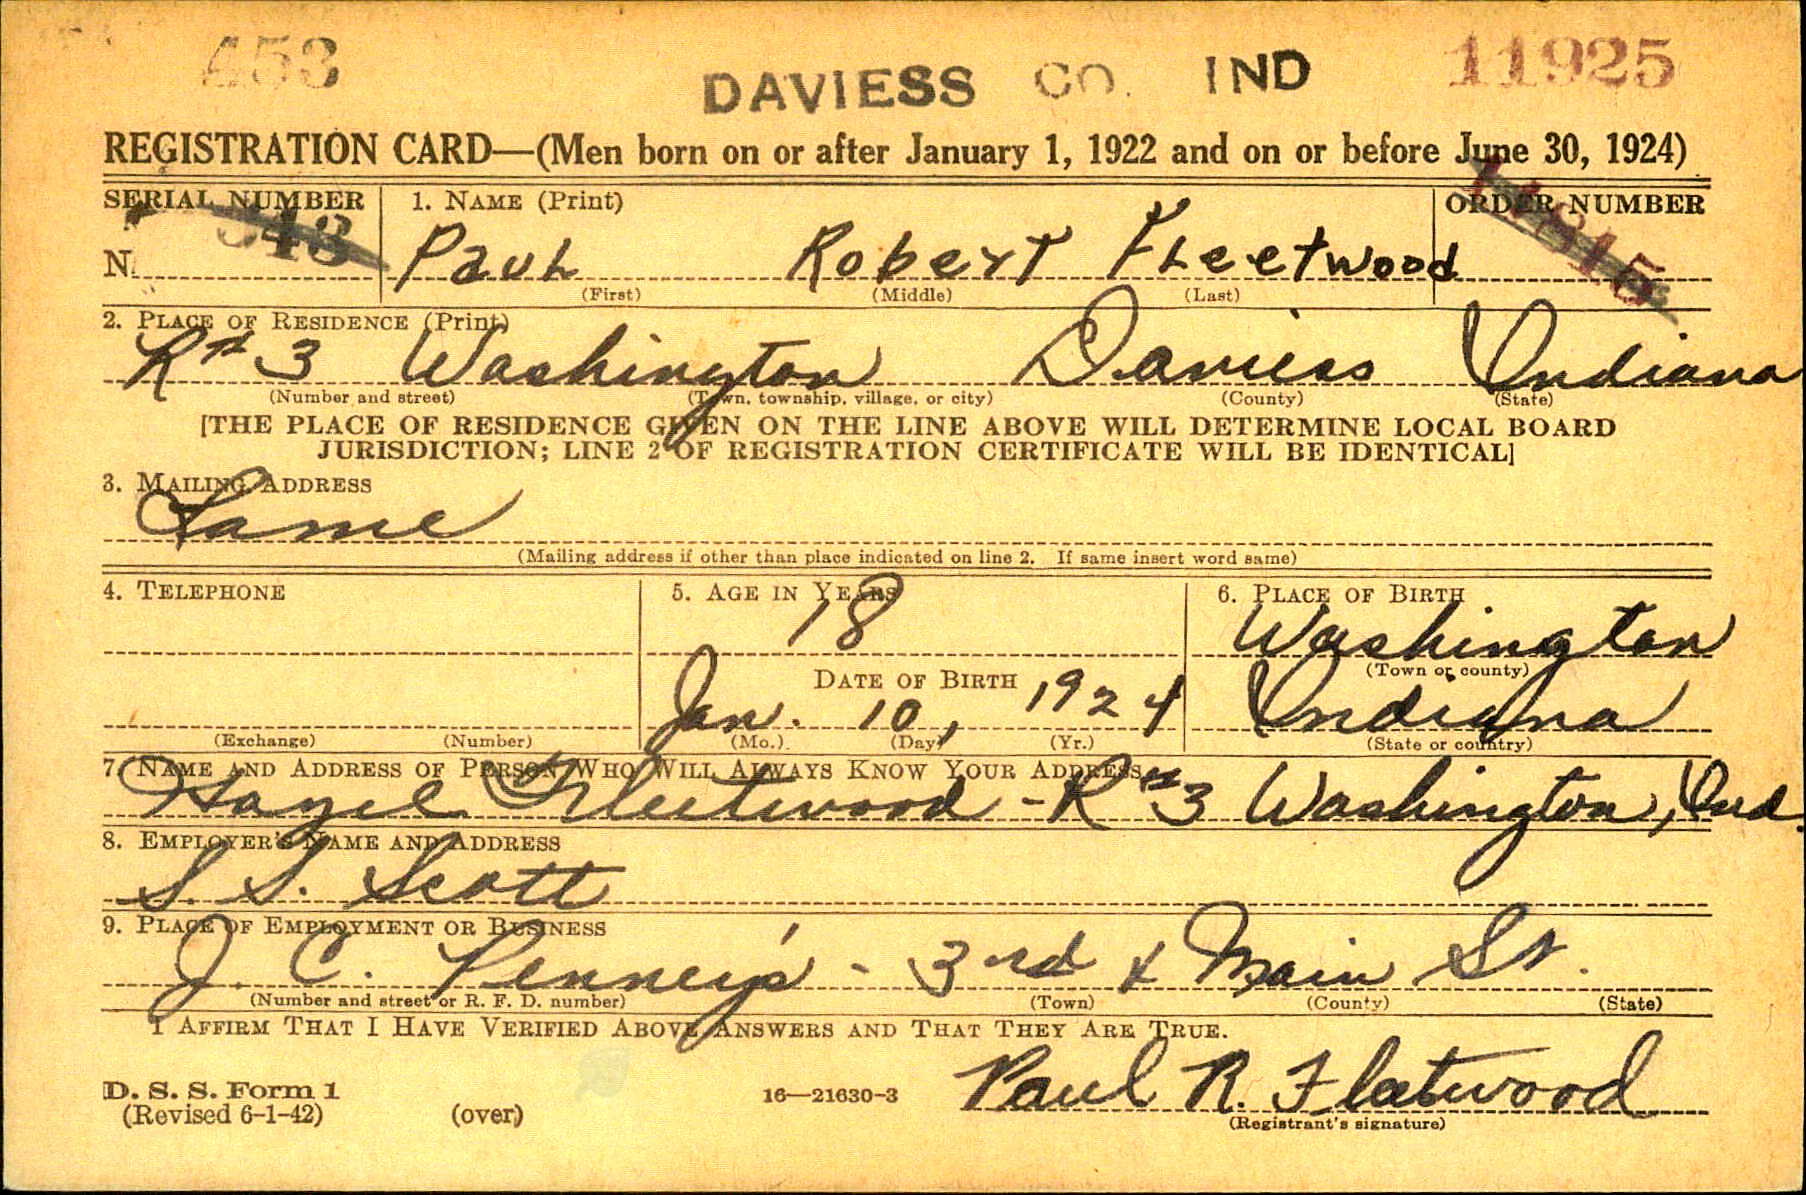 453 DAVIESS CO. IND 11925
REGISTRATION CARD—(Men born on or after January 1, 1922 and on or before June 30, 1924)
SERIAL NUMBER 1. NAME (Print) ORDER NUMBER
N. Paul Robert Fleetwood
(First) (Middle) (Last)
2. PLACE OF RESIDENCE (Print)
R# 3 Washington Daviess Indiana
(Number and street) (Town, township, village, or city) (County) (State)
[THE PLACE OF RESIDENCE GIVEN ON THE LINE ABOVE WILL DETERMINE LOCAL BOARD
JURISDICTION; LINE 2 OF REGISTRATION CERTIFICATE WILL BE IDENTICAL]
3. MAILING ADDRESS
Same
(Mailing address if other than place indicated on line 2. If same insert word same)
4. TELEPHONE 5. AGE IN YEARS 6. PLACE OF BIRTH
18 Washington
(Town or county)
DATE OF BIRTH
Jan. 10, 1924 Indiana
(Exchange) (Number) (Mo.) (Day) (Yr.) (State or country)
7. NAME AND ADDRESS OF PERSON WHO WILL ALWAYS KNOW YOUR ADDRESS
Hazel Fleetwood - R#3 Washington, Ind.
8. EMPLOYER'S NAME AND ADDRESS
S. S. Scott
9. PLACE OF EMPLOYMENT OR BUSINESS
J. C. Penney's - 3rd & Main St.
(Number and street or R. F. D. number) (Town) (County) (State)
I AFFIRM THAT I HAVE VERIFIED ABOVE ANSWERS AND THAT THEY ARE TRUE.
D. S. S. Form 1
(Revised 6-1-42) (over) 16—21630-3 Paul R. Fleetwood
(Registrant's signature)